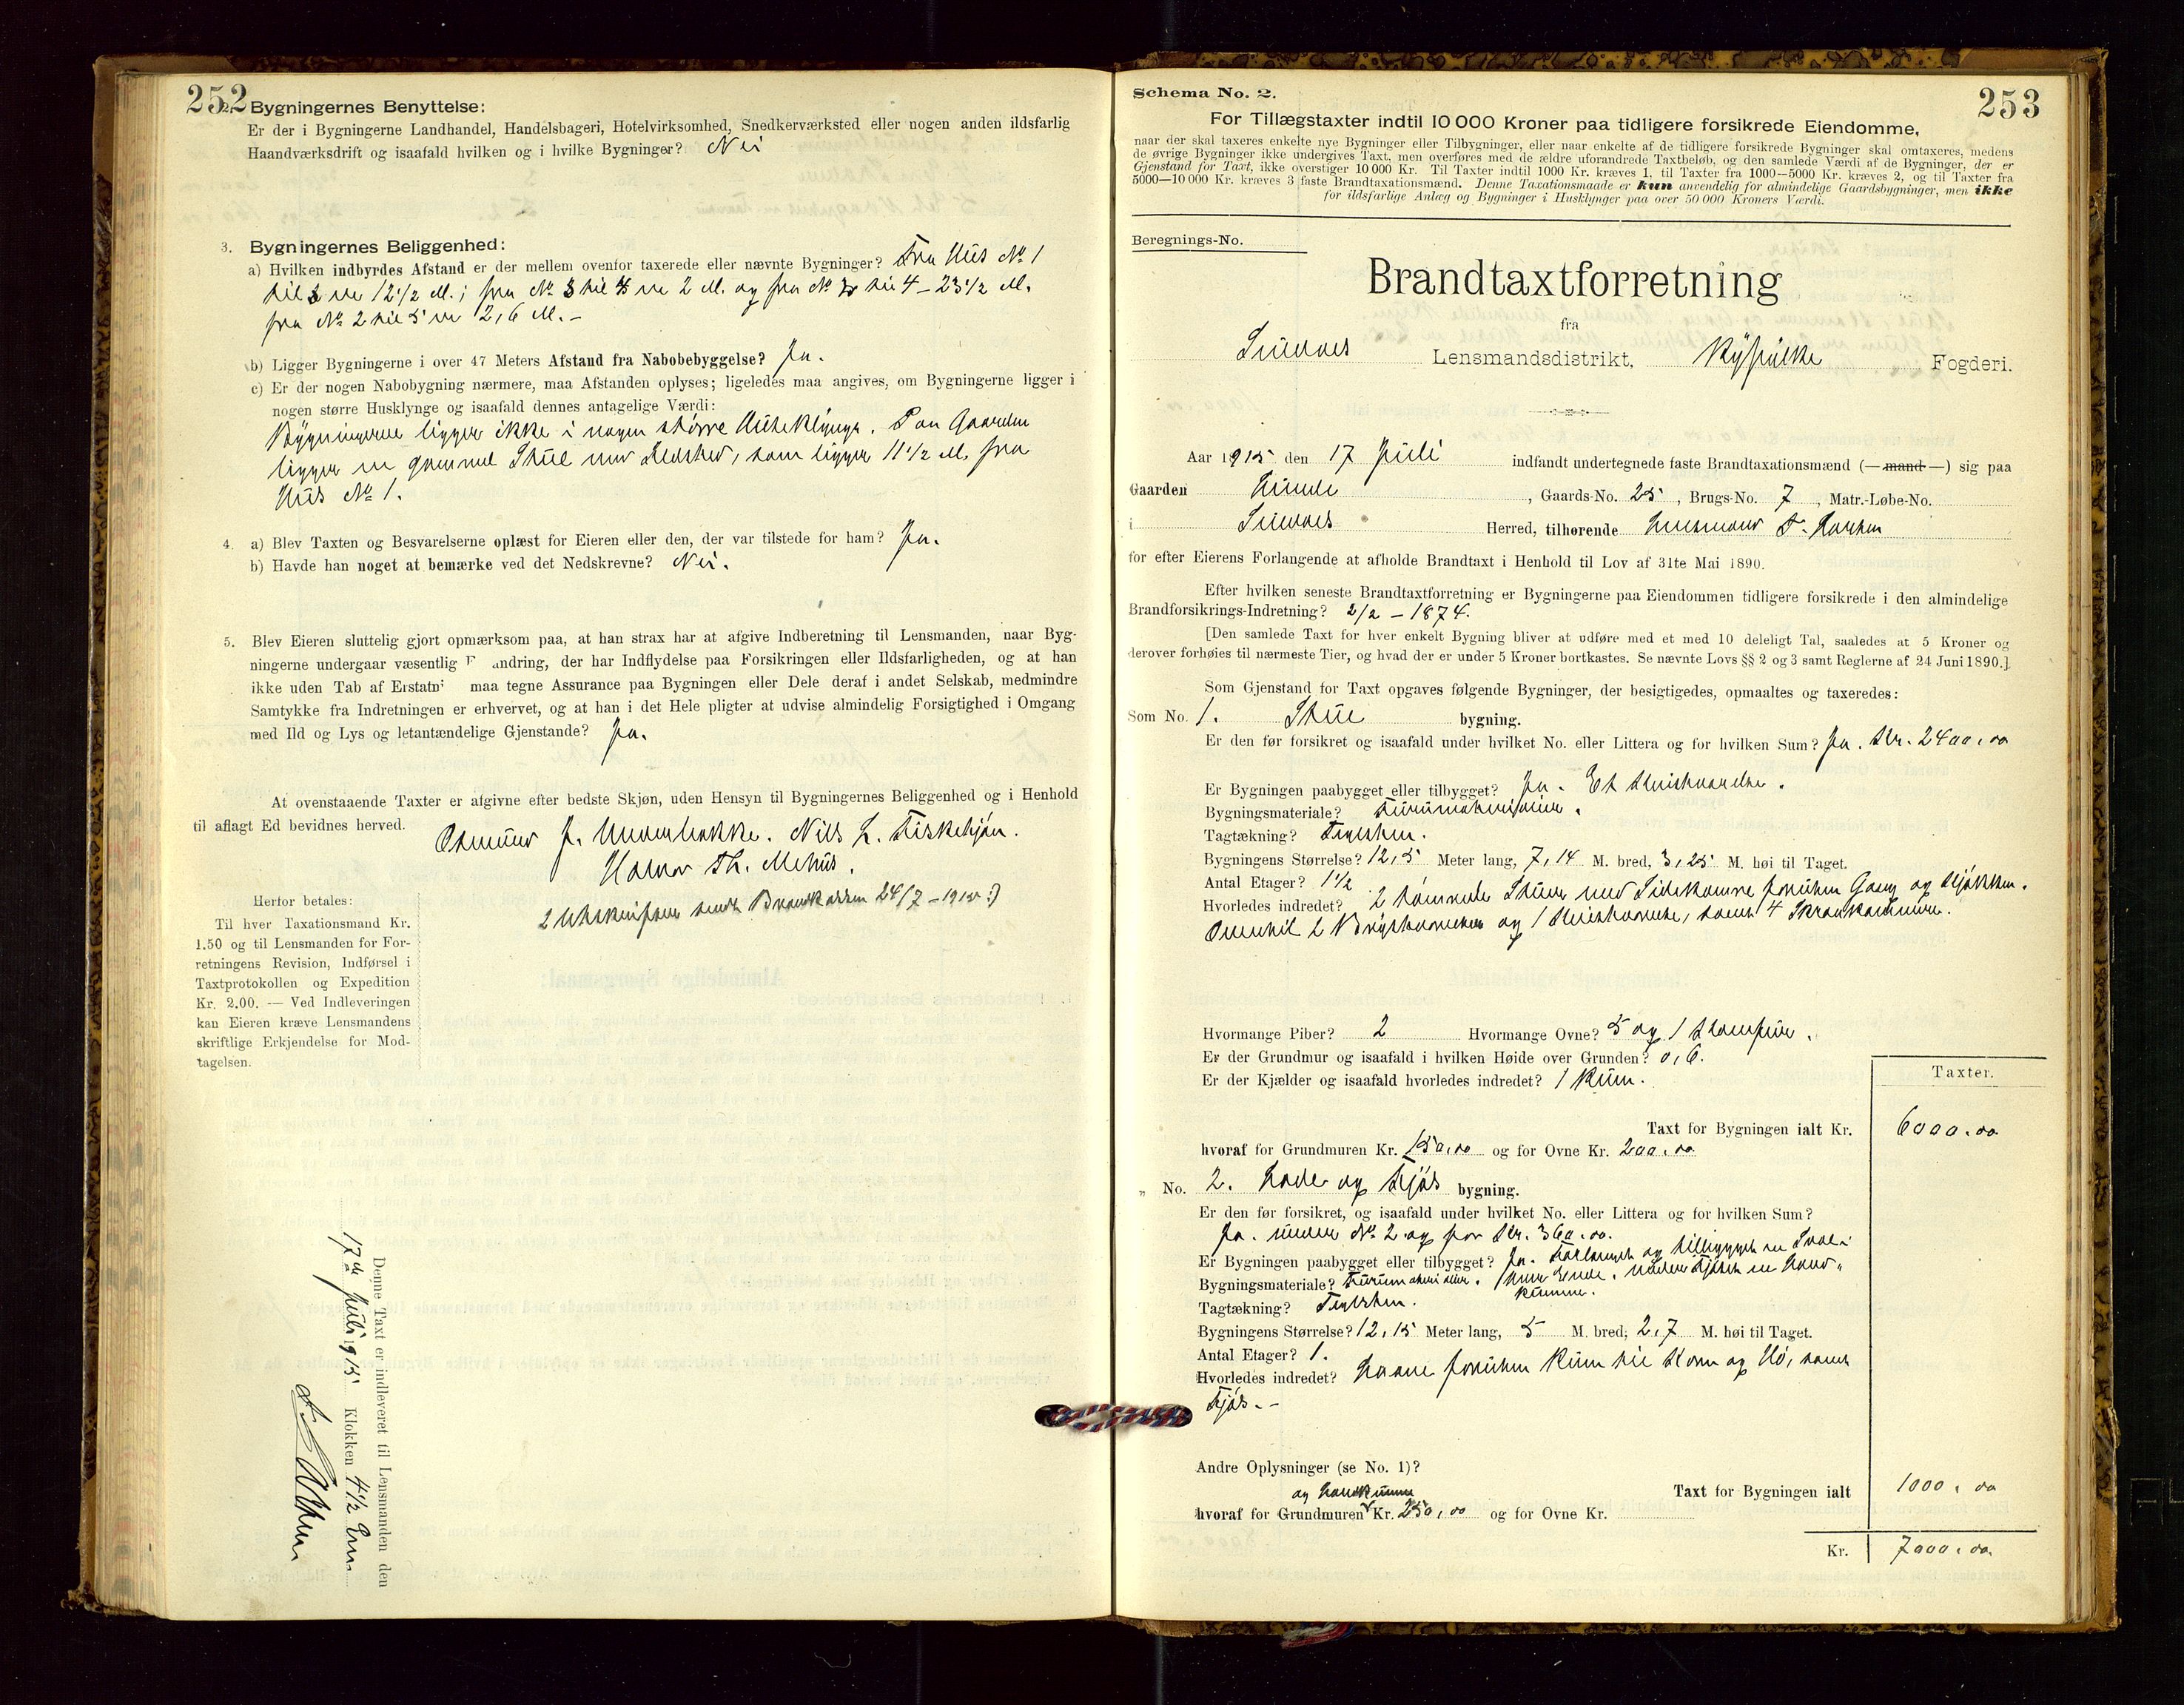 252
2. Bygningernes Benyttelse:
Er der i Bygningerne Landhandel, Handelsbageri, Hotelvirksomhed, Snedkerværksted eller nogen anden ildsfarlig
Haandværksdrift og isaafald hvilken og i hvilke Bygninger? Nei
3. Bygningernes Beliggenhed:
a) Hvilken indbyrdes Afstand er der mellem ovenfor taxerede eller nævnte Bygninger? Fra Hus No 1
til 2 er 12 1/2 M.; fra No 3 til 4 er 2 M. og fra No til 4 – 23 1/2 M.
fra No 2 til 5 er 2,6 M. –
b) Ligger Bygningerne i over 47 Meters Afstand fra Nabobebyggelse? Ja.
c) Er der nogen Nabobygning nærmere, maa Afstanden oplyses; ligeledes maa angives, om Bygningerne ligger i
nogen større Husklynge og isaafald dennes antagelige Værdi:
Bygningerne ligger ikke i nogen større Huseklynge. Paa Gaarden
ligger en gammel Stue med Ildsted, som ligger 11 1/2 M. fra
Hus No 1.
4. a) Blev Taxten og Besvarelserne oplæst for Eieren eller den, der var tilstede for ham? Ja.
b) Havde han noget at bemærke ved det Nedskrevne? Nei.
5. Blev Eieren sluttelig gjort opmærksom paa, at han strax har at afgive Indberetning til Lensmanden, naar Byg-
ningerne undergaar væsentlig F andring, der har Indflydelse paa Forsikringen eller Ildsfarligheden, og at han
ikke uden Tab af Erstatni maa tegne Assurance paa Bygningen eller Dele deraf i andet Selskab, medmindre
Samtykke fra Indretningen er erhvervet, og at han i det Hele pligter at udvise almindelig Forsigtighed i Omgang
med Ild og Lys og letantændelige Gjenstande? Ja.
At ovenstaaende Taxter er afgivne efter bedste Skjøn, uden Hensyn til Bygningernes Beliggenhed og i Henhold
til aflagt Ed bevidnes herved.
Osmund J. Underbakke. Nils L. Fiskehjøn.
Halvor Th. Mehus.
2 Utskrifter sendt Brandkassen 24/7 – 1915
Herfor betales:
Til hver Taxationsmand Kr.
1.50 og til Lensmanden for For-
retningens Revision, Indførsel i
Taxtprotokollen og Expedition
Kr. 2.00. — Ved Indleveringen
kan Eieren kræve Lensmandens
skriftlige Erkjendelse for Mod-
tagelsen.
Denne Taxt er indleveret til Lensmanden den
17de Juli 1915 Klokken 4 1/2 Em
253
Schema No. 2.
For Tillægstaxter indtil 10 000 Kroner paa tidligere forsikrede Eiendomme,
naar der skal taxeres enkelte nye Bygninger eller Tilbygninger, eller naar enkelte af de tidligere forsikrede Bygninger skal omtaxeres, medens
de øvrige Bygninger ikke undergives Taxt, men overføres med de ældre uforandrede Taxtbeløb, og den samlede Værdi af de Bygninger, der er
Gjenstand for Taxt, ikke overstiger 10 000 Kr. Til Taxter indtil 1000 Kr. kræves 1, til Taxter fra 1000—5000 Kr. kræves 2, og til Taxter fra
5000—10 000 Kr. kræves 3 faste Brandtaxationsmænd. Denne Taxationsmaade er kun anvendelig for almindelige Gaardsbygninger, men ikke
for ildsfarlige Anlæg og Bygninger i Husklynger paa over 50 000 Kroners Værdi.
Beregnings-No.
Brandtaxtforretning
fra
Suldal Lensmandsdistrikt, Ryfylke Fogderi.
Aar 1915 den 17 Juli indfandt undertegnede faste Brandtaxationsmænd (—mand—) sig paa
Gaarden Lunde, Gaards-No. 25, Brugs-No. 7, Matr.-Løbe-No.
i Suldal Herred, tilhørende Lensmand T. Karsten
for efter Eierens Forlangende at afholde Brandtaxt i Henhold til Lov af 31te Mai 1890.
Efter hvilken seneste Brandtaxtforretning er Bygningerne paa Eiendommen tidligere forsikrede i den almindelige
Brandforsikrings-Indretning? 2/2 – 1874.
[Den samlede Taxt for hver enkelt Bygning bliver at udføre med et med 10 deleligt Tal, saaledes at 5 Kroner og
derover forhøies til nærmeste Tier, og hvad der er under 5 Kroner bortkastes. Se nævnte Lovs §§ 2 og 3 samt Reglerne af 24 Juni 1890.]
Som Gjenstand for Taxt opgaves følgende Bygninger, der besigtigedes, opmaaltes og taxeredes:
Som No. 1. Stue bygning.
Er den før forsikret og isaafald under hvilket No. eller Littera og for hvilken Sum? Ja. Kr. 2400,00
Er Bygningen paabygget eller tilbygget? Ja. Et Kvistværelse.
Bygningsmateriale? Furumaterialier.
Tagtækning? Teglsten.
Bygningens Størrelse? 12,5 Meter lang, 7,14 M. bred, 3,25 M. høi til Taget.
Antal Etager? 1 1/2
Hvorledes indredet? 2 tømrede Stuer med Sidekamre foruden Gang og Kjøkken.
Oventil 2 Brystværelser og 1 Kvistværelse, samt 4 Skraakammere.
Hvormange Piber? 2 Hvormange Ovne? 5 og 1 Komfur.
Er der Grundmur og isaafald i hvilken Høide over Grunden? 0,6.
Er der Kjælder og isaafald hvorledes indredet? 1 Rum.
Taxter.
Taxt for Bygningen ialt Kr. 6000.00
hvoraf for Grundmuren Kr. 150,00 og for Ovne Kr. 200.00
„ No. 2. Lade og Fjøs bygning.
Er den før forsikret, og isaafald under hvilket No. eller Littera og for hvilken Sum?
Ja. under No 2 og for Kr. 360.00.
Er Bygningen paabygget eller tilbygget? Ja. Forlænget og tilbygget en Sval i
Bygningsmateriale? Furumaterialier. hver Ende. under Fjøset en Land-
kumme.
Tagtækning? Teglsten.
Bygningens Størrelse? 12,15 Meter lang, 5 M. bred, 2,7 M. høi til Taget.
Antal Etager? 1.
Hvorledes indredet? Laave foruden Rum til Korn og Hø, samt
Fjøs. –
Andre Oplysninger (se No. 1)?
og Landkumme
Taxt for Bygningen ialt 1000,00
hvoraf for Grundmuren Kr. 250,00 og for Ovne Kr.
Kr. 7000.00